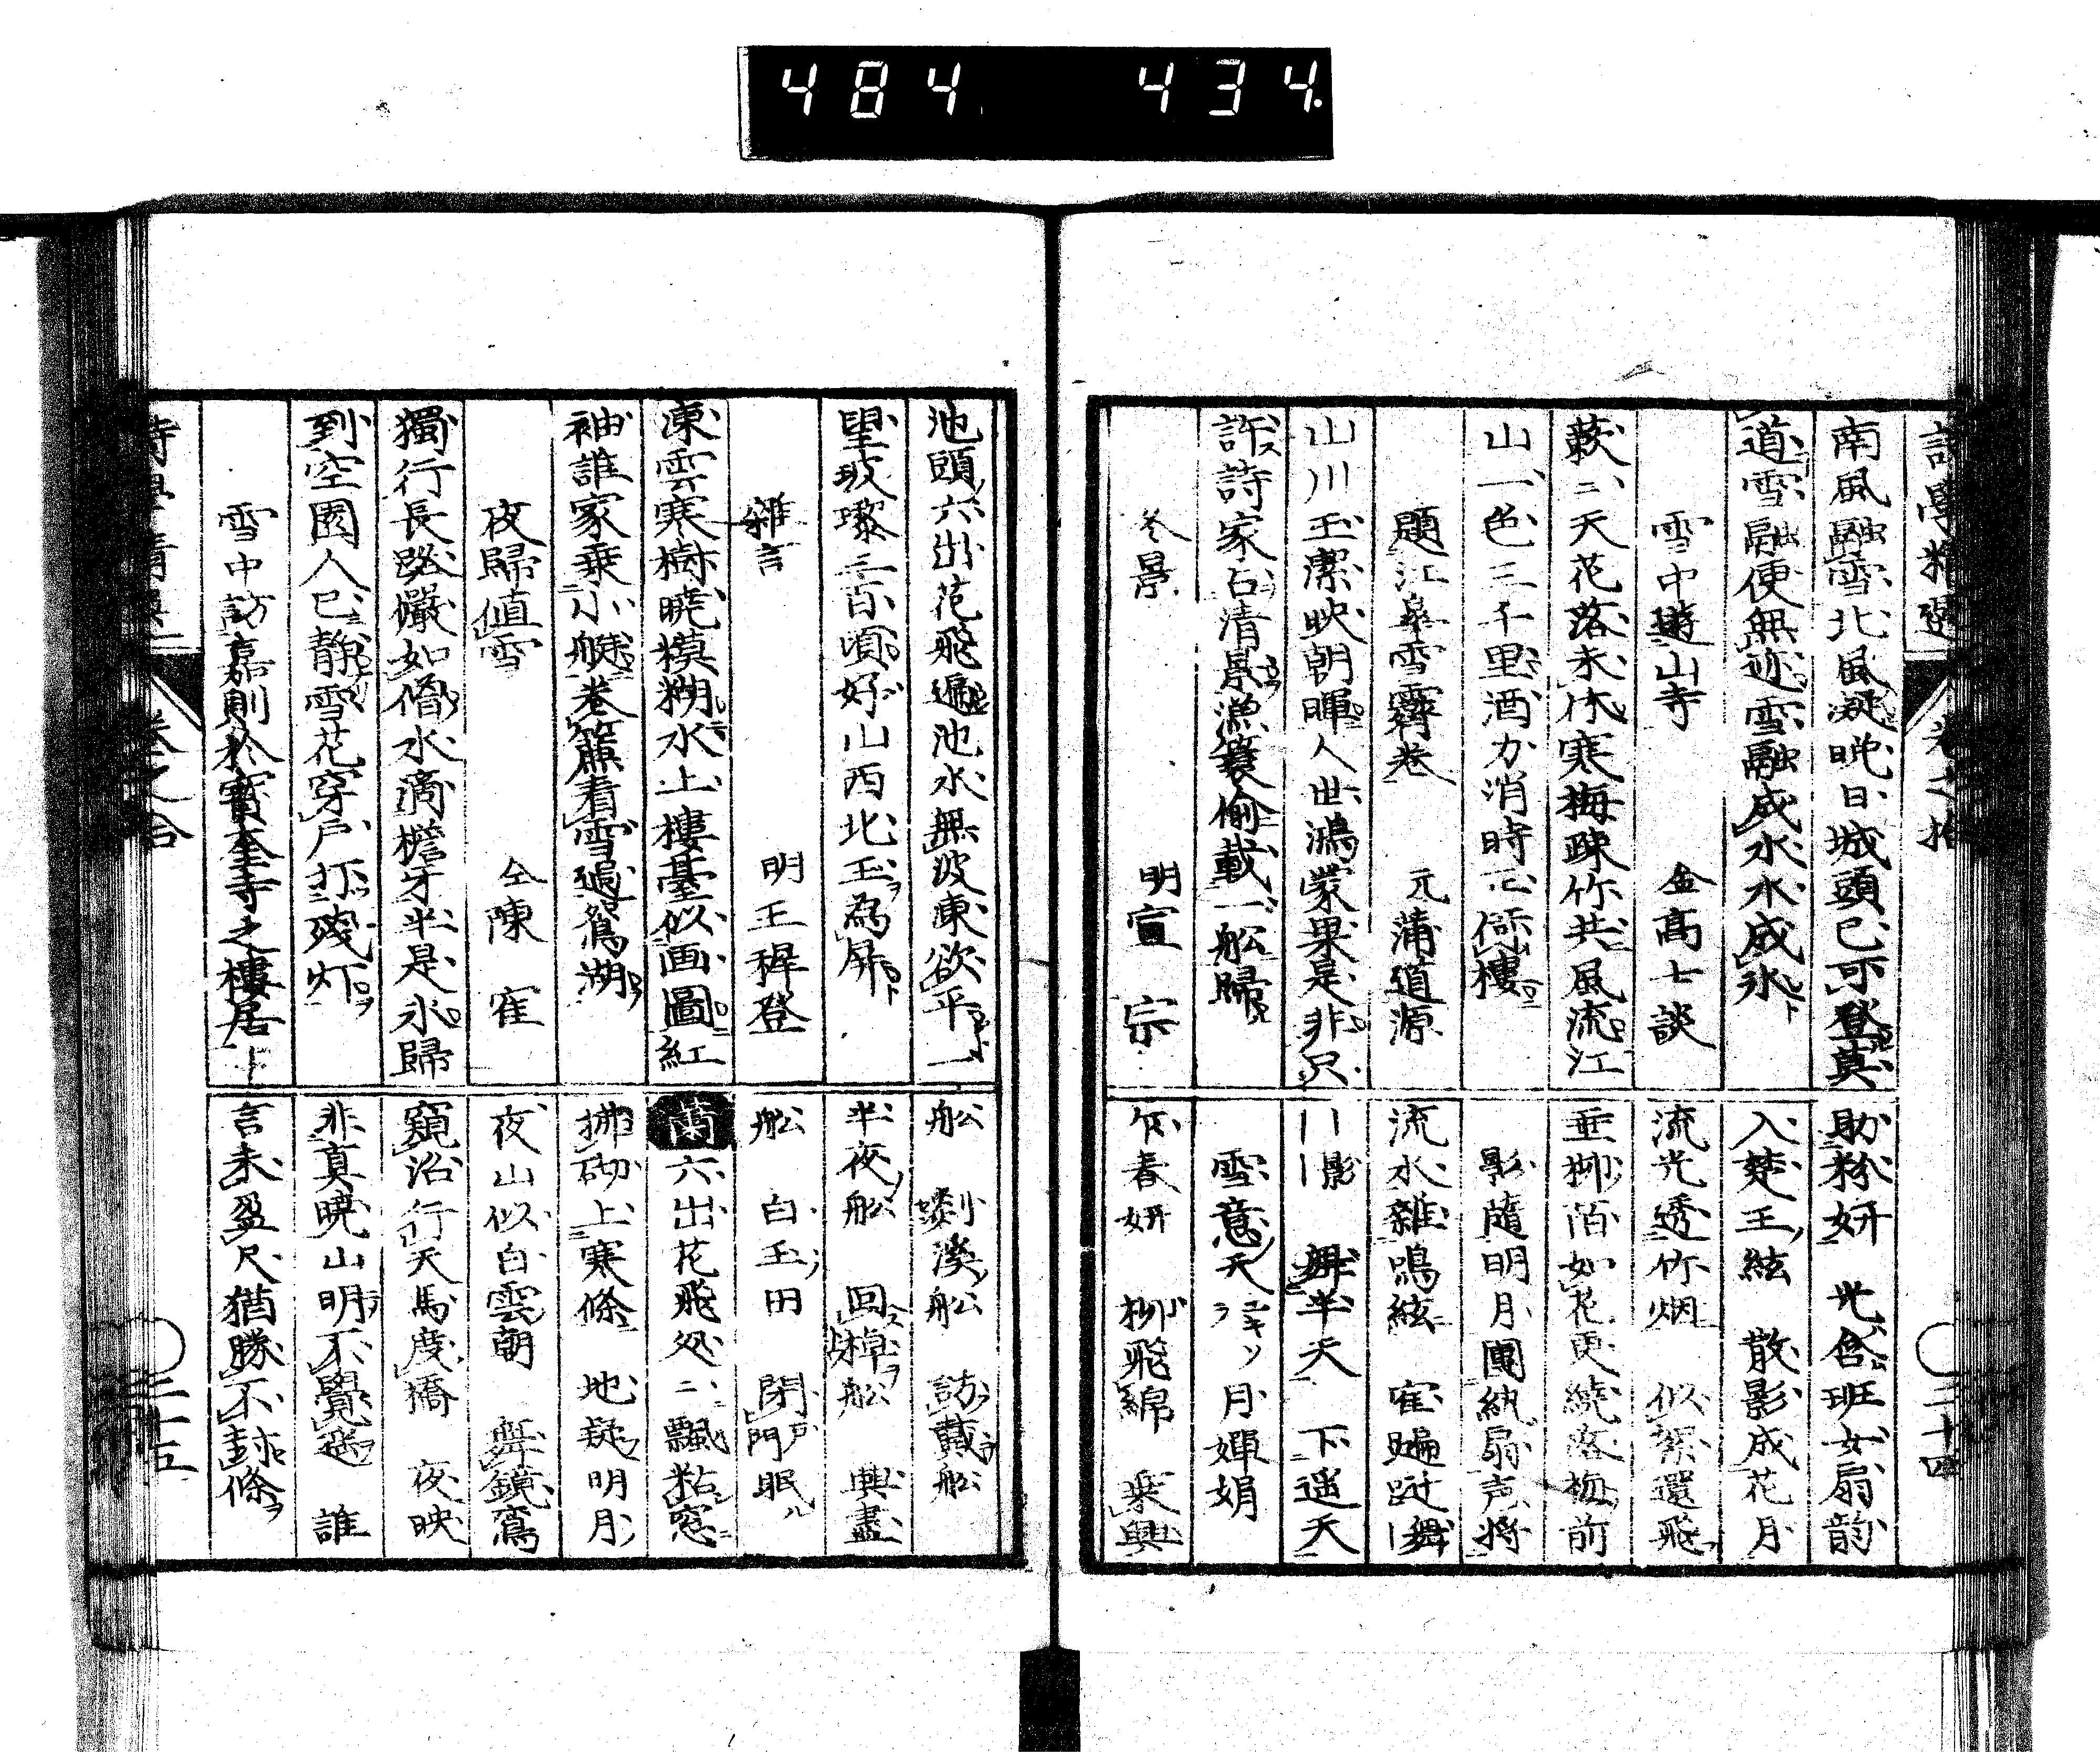 484 434.
南風融雪北風凝晩日城頭已可登莫
道雪融便無迹雪融成水水成氷
雪中遊山寺 金高士談
蔌二天花落未休寒梅疎竹共風流江
山一色三千里酒力消時正倚樓
題江皐雪霽卷 元蒲道源
山川玉潔映朝暉人世鴻蒙果是非只
許詩家占清景漁簑偷載一船歸
冬景 明宣宗
助粉妍 光含班女扇韵
入楚王絃 散影成花月
流光透竹烟 似絮還飛
垂柳陌如花更繞落梅前
影隨明月團紈扇声將
流水雜鳴絃
影 半天 下遥天
雪意天 月嬋娟
作春妍 柳飛綿 乘興
三十四
池頭六出花飛遍池水無波凍欲平一
望玻瓈三百頃好山西北玉為屏
雜言 明王穉登
凍雲寒樹曉模糊水上樓臺似画圖紅
袖誰家乗小艇卷簾看雪過鴛湖
夜歸値雪 仝陳寉
獨行長路儼如僧水滴檐牙半是氷歸
到空園人已静雪花穿戸打殘灯
雪中訪嘉則於寳奎寺之樓居
船 剡溪船 訪戴船
半夜船 回棹船 興盡
船 白玉田 閉戸眠
六出花飛処二飄粘窓
拂砌上寒條 地疑明月
夜山似白雲朝 舞鏡鸞
窺沼行天馬度橋 夜映
非真曉山明不覺遥 誰
言未盈尺猶勝不封條
三十五